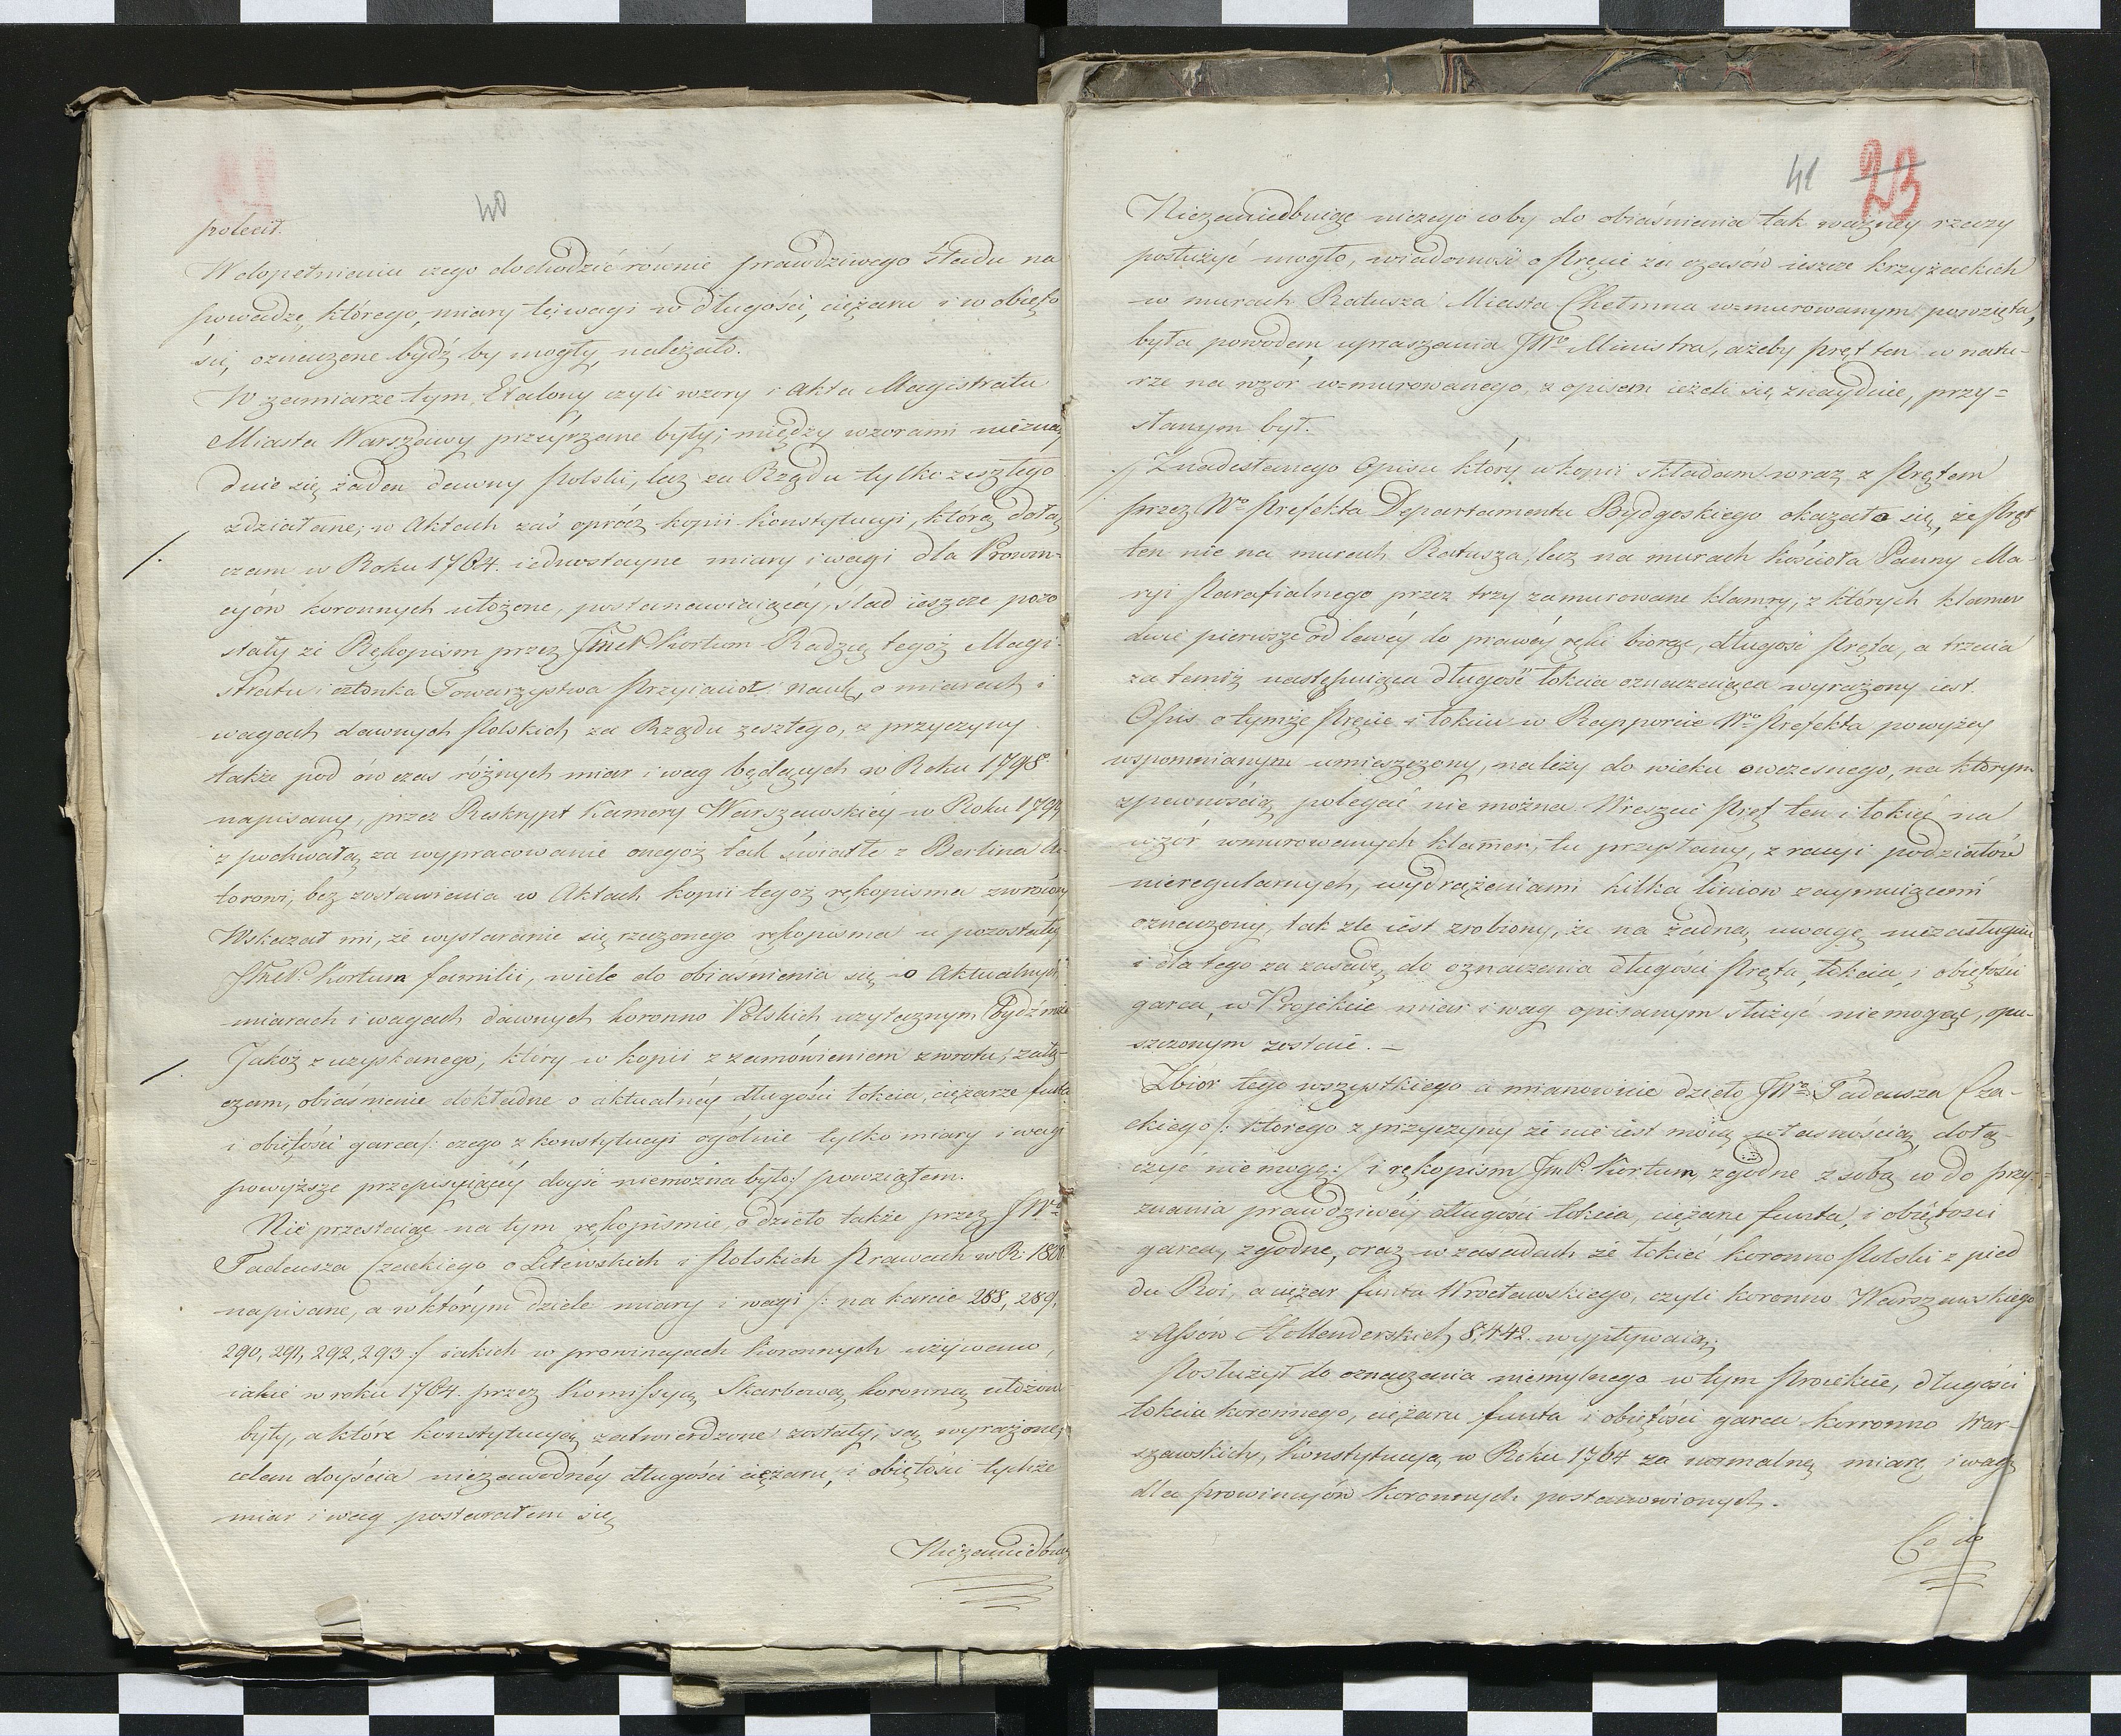 40
polecił.
W dopełnieniu czego dochodzić równie prawdziwego śladu na
powadze, którego, miary i wagi w długości, ciężaru i w obięto
ści, oznaczone bydź by mogły, należało.
W zamiarze tym, Etalony czyli wzory i Akta Magistratu
Miasta Warszawy przeyrzane były; między wzorami nieznay
duie się żaden dawny Polski, lecz za Rządu tylko zeszłego
zdziałane; w Aktach zaś oprócz kopii Konstytucyi, którą dołą
/.
czam w Roku 1764. iednostayne miary i wagi dla Prowin-
cyów koronnych ułożone, postanawiaiącéy, ślad ieszcze pozo
stały że Rękopism przez Kortum Radzcę tegóż Magi-
stratu i członka Towarzystwa Przyiaciół nauk, o miarach i
wagach dawnych Polskich za Rządu zeszłego, z przyczyny
także pod ów czas różnych miar i wag będących w Roku 1798
napisany, przez Reskrypt Kamery Warszawskiéy w Roku 1799
z pochwałą za wypracowanie onegoż tak światłe z Berlina Au-
torowi, bez zostawienia w Aktach kopii tegoż rękopisma zwrócony
Wskazał mi, że wystaranie się rzeczonego rękopisma u pozostałéy
Kortum familii, wiele do obiaśnienia się o Aktualnych
miarach i wagach dawnych koronno Polskich użytecznym bydź może
/.
Jakoż z uzyskanego, który w kopii z zamówieniem zwrotu, załą-
czam, obiaśnienie dokładne o aktualnéy długości łokcia, ciężarze funta
i obiętości garca /: czego z konstytucyi ogólnie tylko miary i wagi
powyższe przepisuiącéy doyść niemożna było :/ powziąłem.
Nie przestaiąc na tym rękopiśmie, o dzieło także przez JWo
Tadeusza Czackiego o Litewskich i Polskich Prawach w R: 1800
napisane, a w którym dziele miary i wagi /: na karcie 288, 289,
290, 291, 292, 293 :/ iakich w prowincyach Koronnych używano,
iakie w roku 1764. przez Kommissyą Skarbową koronną ułożone
były, a które konstytucyą zatwierdzone zostały, są wyrażone,
celem doyścia niezawodnéy długości ciężaru, i obiętości tychże
miar i wag postarałem się
Niezaniedbuiąc
41 23
Niezaniedbuiąc niczego coby do obiaśnienia tak ważney rzeczy
posłużyć mogło, wiadomość o Pręcie za czasów ieszcze krzyżackich
w murach Ratusza Miasta Chełmna wmurowanym powzięta,
była powodem upraszania JWo Ministra, ażeby pręt ten w natu-
rze na wzór wmurowanego, z opisem ieżeli się znayduie, przy=
słanym był.
./. Z nadesłanego Opisu który w kopii składam wraz z Prętem
przez Wo Prefekta Departamentu Bydgoskiego okazało się, że Pręt
ten nie na murach Ratusza, lecz na murach kościoła Panny Ma-
ryi Parafialnego przez trzy zamurowane klamry, z których klamer
dwie pierwsze od lewéy do prawéy ręki biorąc, długość Pręta, a trzecia
za temiż następuiąca długość łokcia oznaczaiąca wyrażony iest.
Opis o tymże Pręcie i łokciu w Rapporcie Wo Prefekta powyżey
wspomnianym umieszczony, należy do wieku owczesnego, na którym
zpewnością polegać nie można. Wreszcie Pręt ten i łokieć na
wzór wmurowanych klamer, tu przysłany, z racyi podziałów
nieregularnych, wydrążeniami kilka liniow zaymuiącemi
oznaczony, tak źle iest zrobiony, że na żadną uwagę niezasługuie
i dla tego za zasadę do oznaczenia długości Pręta, łokcia, i obiętości
garca, w Projekcie miar i wag opisanym służyć niemogąc, opu-
szczonym zostaie. —
Zbiór tego wszystkiego a mianowicie dzieło JWo Tadeusza Cza-
ckiego /: którego z przyczyny że nie iest moią własnością, dołą-
czyć niemogę :/ i rękopism Kortum, zgodne z sobą w do przy-
znania prawdziwéy długości łokcia, ciężaru funta, i obiętości
garca, zgodne, oraz w zasadach że łokieć koronno Polski z pied
du Roi, a ciężar funta Wrocławskiego, czyli koronno Warszawskiego
z Assów Hollenderskich 8,442. wypływaią;
Posłużył do oznaczenia niemylnego w tym Proiekcie, długości
łokcia koronnego, ciężaru funta i obiętości garca korronno War-
szawskich, Konstytucyą w Roku 1764 za normalną miarę i wagę
dla prowincyów Koronnych postanowionych.
Co do